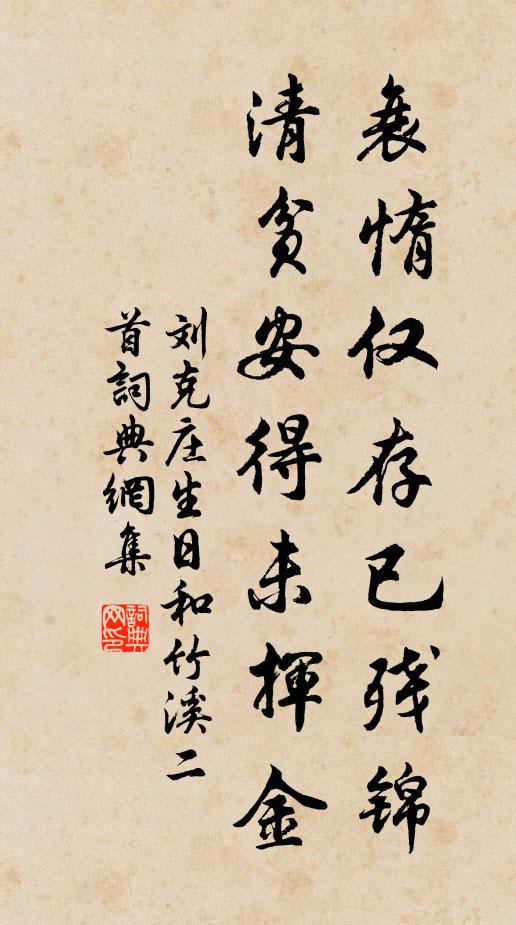 衰惰仅存已残锦
清贫安得未揮金
刘克庄生日和竹溪二
首詞典網集
詞典网印